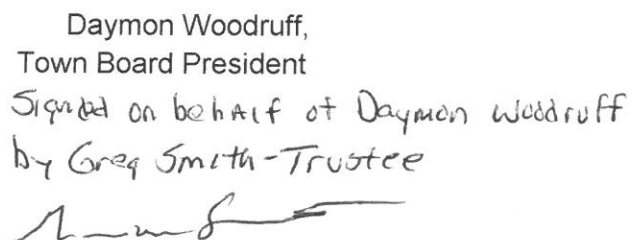 Daymon Woodruff,
Town Board President
Signed on behalf of Daymon Woodruff
by Greg Smith-Trustee